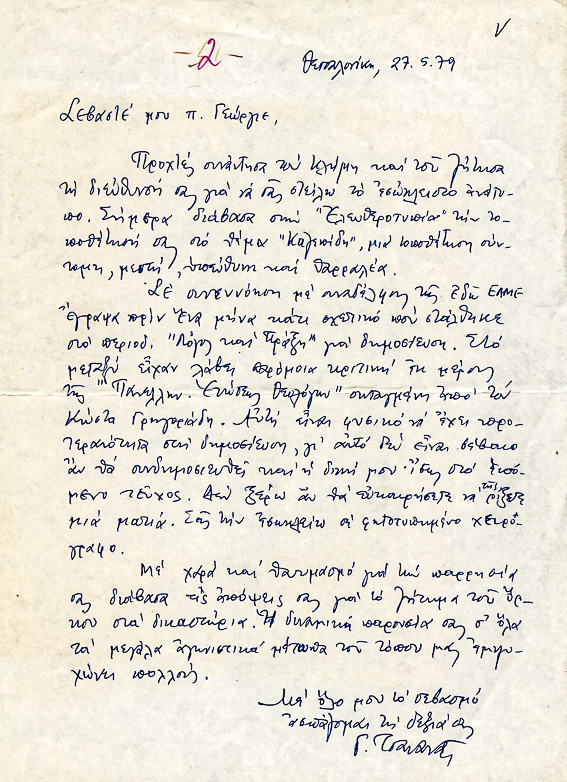 √
-2-
Θεσσαλονίκη, 27.5.79
Σεβαστέ μου π. Γεώργιε,
Προχτές συνάντησα τον Κλήμη καί του ζήτησα
τή διεύθυνσή σας γιά νά σᾶς στείλω τό ἐσώκλειστο ἀνάτυ-
πο. Σήμερα διάβασα στήν "Ἐλευθεροτυπία" τήν το-
ποθέτησή σας στό θέμα "Καλεπίδη", μιά τοποθέτηση σύν-
τομη, μεστή, ὑπεύθυνη καί θαρραλέα.
Σέ συνεννόηση μέ συναδέλφους τῆς ἐδῶ ΕΛΜΕ
ἔγραψα πρίν ἕνα μήνα κάτι σχετικό πού στάλθηκε
στό περιοδ. "Λόγος καί Πράξη" γιά δημοσίευση. Στό
μεταξύ εἶχαν λάβει παρόμοια κριτική ἐκ μέρους
τῆς "Πανελλην. Ἑνώσεως Θεολόγων" συνταγμένη ἀπό τόν
Κώστα Γρηγοριάδη. Αὐτή εἶναι φυσικό νά ἔχει προ-
τεραιότητα στή δημοσίευση, γι' αὐτό δέν εἶναι βέβαιο
ἄν θά συνδημοσιευθεῖ καί ἡ δική μου στό ἑπό-
μενο τεῦχος. Δέν ξέρω ἄν θά εὐκαιρήσετε νά τῆς ρίξετε
μιά ματιά. Σᾶς τήν ἐσωκλείω σέ φωτοτυπημένο χειρό-
γραφο.
Μέ χαρά καί θαυμασμό γιά τήν παρρησία
σας διάβασα τίς ἀπόψεις σας γιά τό ζήτημα τοῦ ὅρ-
κου στά δικαστήρια. Ἡ δυναμική παρουσία σας σ' ὅλα
τά μεγάλα ἀγωνιστικά μέτωπα τοῦ τόπου μας ἐμψυ-
χώνει πολλούς.
Μέ ὅλο μου τό σεβασμό
ἀσπάζομαι τή δεξιά σας
Γ. Τσανανᾶς